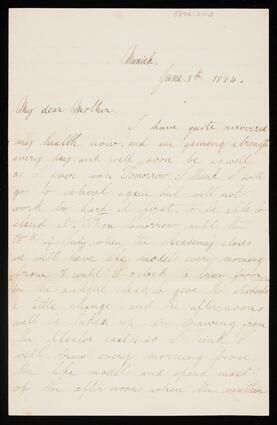 Munich.
June. 8th 1885.
My dear Mother.
I have quite recovered
my health now, and am gaining strength
every day and will soon be as well
as I ever was. Tomorrow I think I will
go to school again but will not
work too hard at first, to be able to
stand it. From tomorrow until the
18th of July, when the Academy closes
we will have life models every morning
from 7 until 11 o'clock to draw from
in the antique class, to give the students
a little change and the afternoons
will be taken up in drawing from
the plaster casts so I think I
will draw every morning from
the life models and spend most
of the afternoon, when the weather